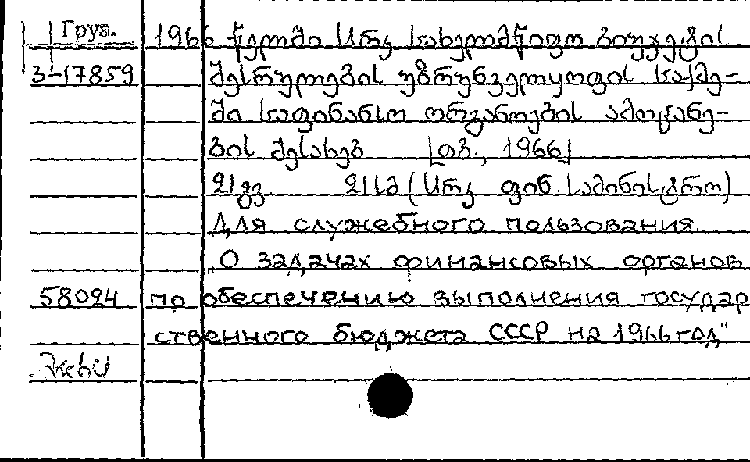 Груз.
1966 წელში სსრკ სახელმწიფო ბიუჯეტის
3-17859 შესრულების უზრუნველყოფის საქმე-
ში საფინანსო ორგანოების ამოცანე-
ბის შესახებ [თბ., 1966]
21 გვ. 21 სმ (სსრკ ფინ. სამინისტრო)
Для служебного пользования
„О задачах финансовых органов
58094 по обеспечению выполнения государ
ственного бюджета СССР на 1966 год"